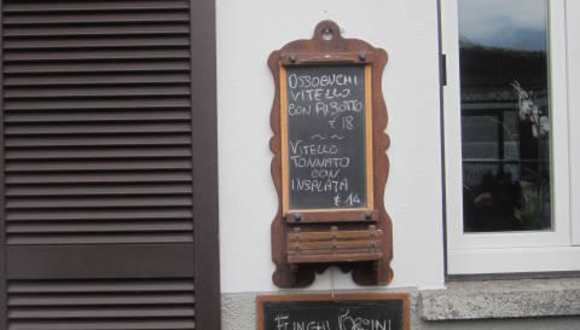 OSSOBUCHI
VITELLO
CON RISOTTO
€ 18
~ ~
VITELLO
TONNATO
CON
INSALATA
€ 14
FUNGHI PORCINI